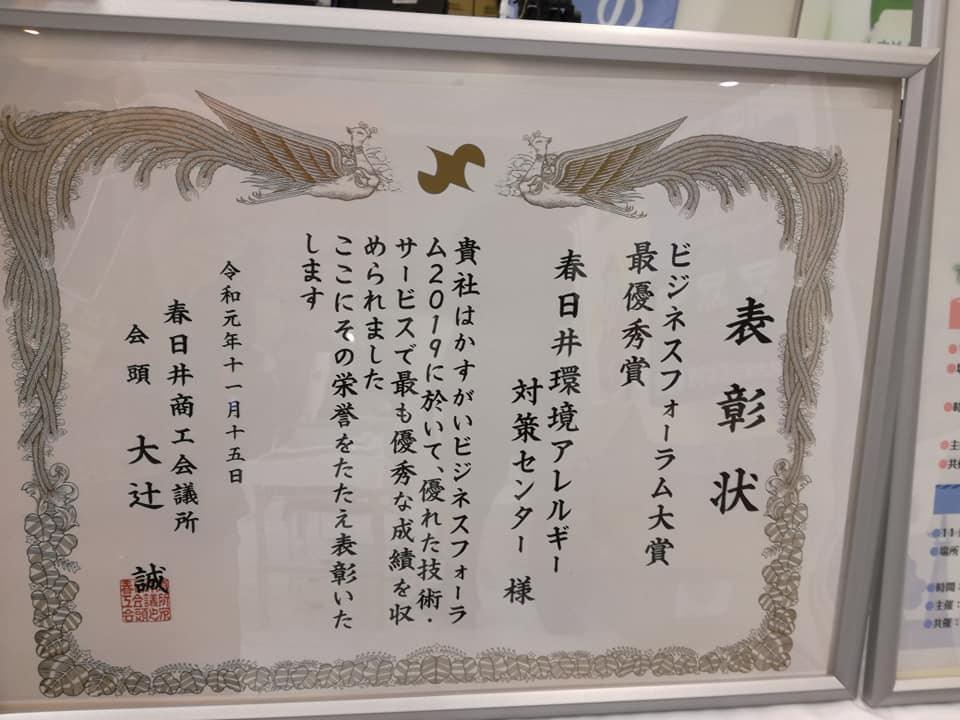 表彰状
ビジネスフォーラム大賞
最優秀賞
春日井環境アレルギー
対策センター 様
貴社はかすがいビジネスフォーラ
ム2019に於いて、優れた技術・
サービスで最も優秀な成績を収
められました
ここにその栄誉をたたえ表彰いた
します
令和元年十一月十五日
春日井商工会議所
会頭 大辻 誠
の
●場所
●時間：
●主催：
●共催：